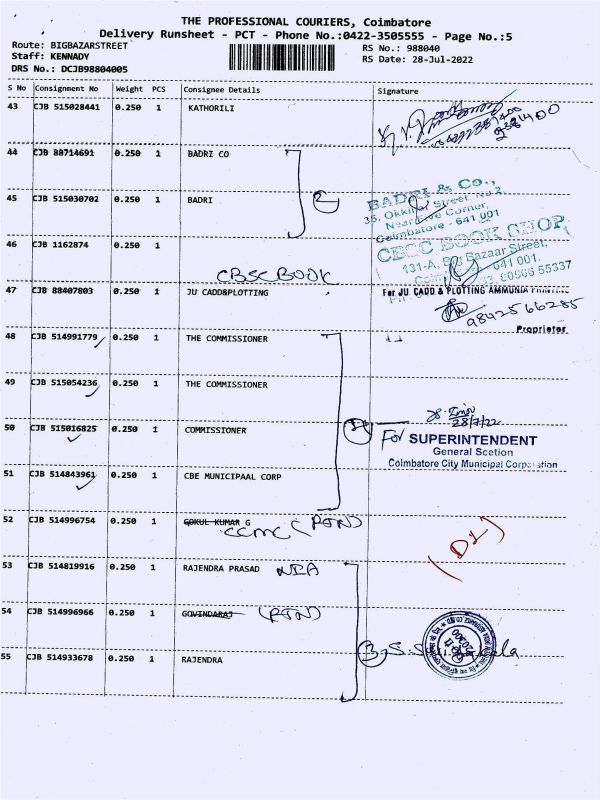 THE PROFESSIONAL COURIERS, Coimbatore
Delivery Runsheet - PCT - Phone No.:0422-3505555 - Page No.:5
Route: BIGBAZARSTREET
RS No.: 988040
Staff: KENNADY
RS Date: 28-Jul-2022
DRS No.: DCJB98804005
S No Consignment No Weight PCS Consignee Details Signature
43 CJB 515028441 0.250 1 KATHORILI
44 CJB 88714691 0.250 1 BADRI CO
45 CJB 515030702 0.250 1 BADRI
2
BADRI & CO.,
35, Okkiliar Street, No.2,
Near Five Corner,
Coimbatore - 641 001
46 CJB 1162874 0.250 1
CBSC BOOK
CBSC BOOK SHOP
131-A, Big Bazaar Street,
641 001.
55337
47 CJB 88407803 0.250 1 JU CADD&PLOTTING
For JU CADD & PLOTTING
9842566285
Proprietor
48 CJB 514991779 0.250 1 THE COMMISSIONER
49 CJB 515054236 0.250 1 THE COMMISSIONER
50 CJB 515016825 0.250 1 COMMISSIONER
28/7/22
For SUPERINTENDENT
General Scetion
Coimbatore City Municipal Corporation
51 CJB 514843961 0.250 1 CBE MUNICIPAAL CORP
52 CJB 514996754 0.250 1 GOKUL KUMAR G
CCMC (RTN)
53 CJB 514819916 0.250 1 RAJENDRA PRASAD
54 CJB 514996966 0.250 1 GOVINDARAJ (RTN)
3
55 CJB 514933678 0.250 1 RAJENDRA